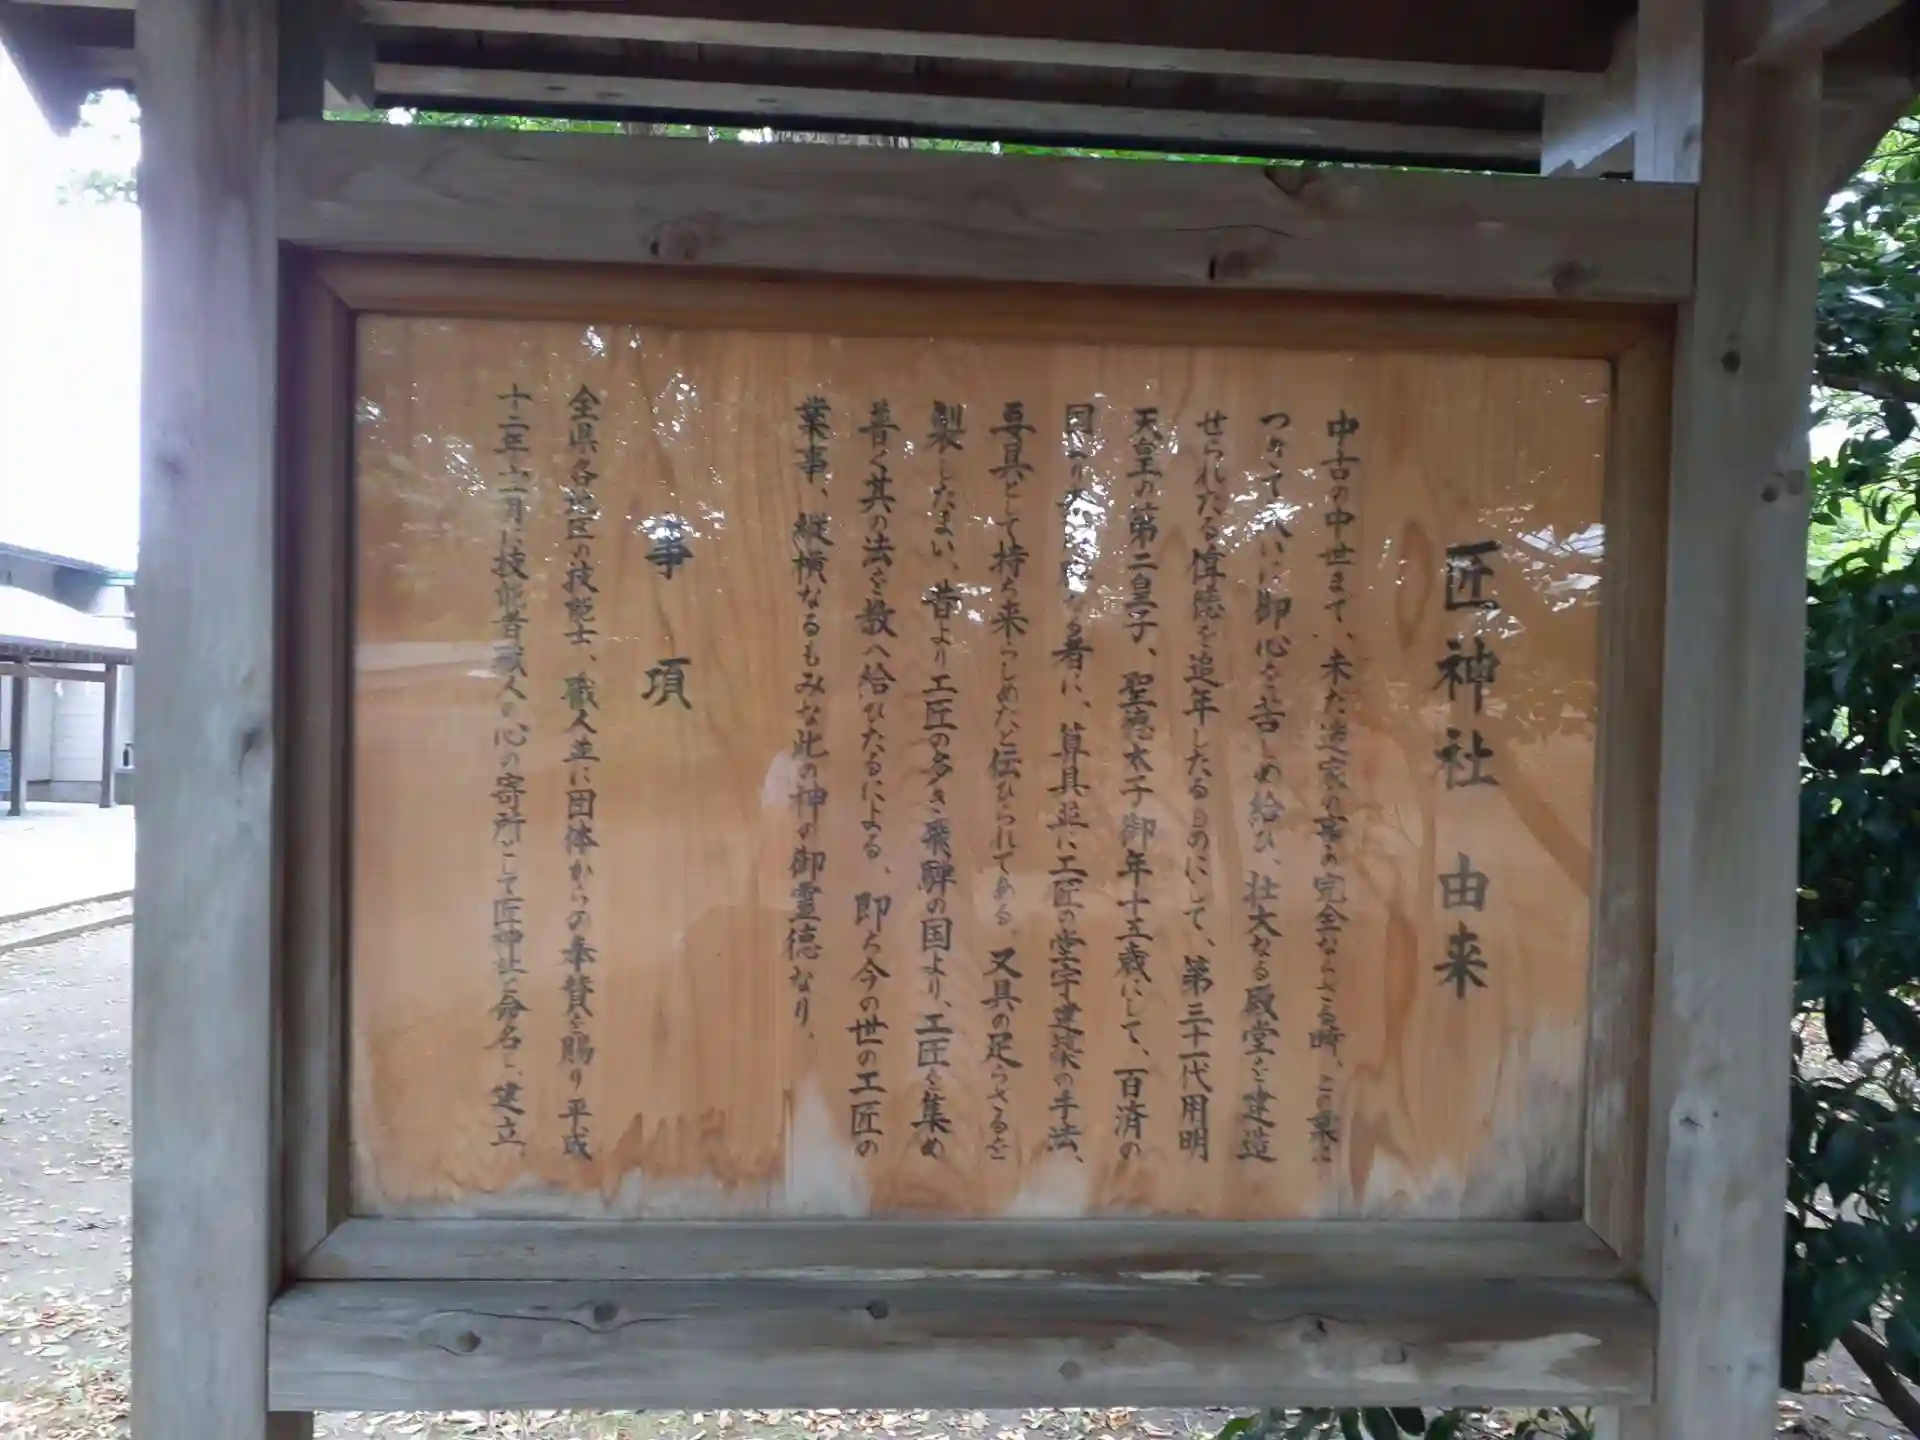 匠神社 由来
中古の中世まで、未だ造家の事の完全ならざる時、この業に
つきて大いに御心を苦しめ給ひ、壮大なる殿堂を建造
せられたる偉徳を追年したるものにして、第三十一代用明
天皇の第二皇子、聖徳太子御年十五歳にして、百済の
国より なる者に、算具並に工匠の堂宇建築の手法、
要具として持ち来らしめたと伝ひられてある。又具の足らざるを
製したまい、昔より工匠の多き飛騨の国より、工匠を集め
普く其の法を教へ給ひたるによる、即ち今の世の工匠の
業事、縦横なるもみな此の神の御霊徳なり、
事項
全県各地区の技能士、職人並に団体からの奉賛を賜り平成
十二年 月に技能者職人の心の寄所として匠神社と命名し、建立、